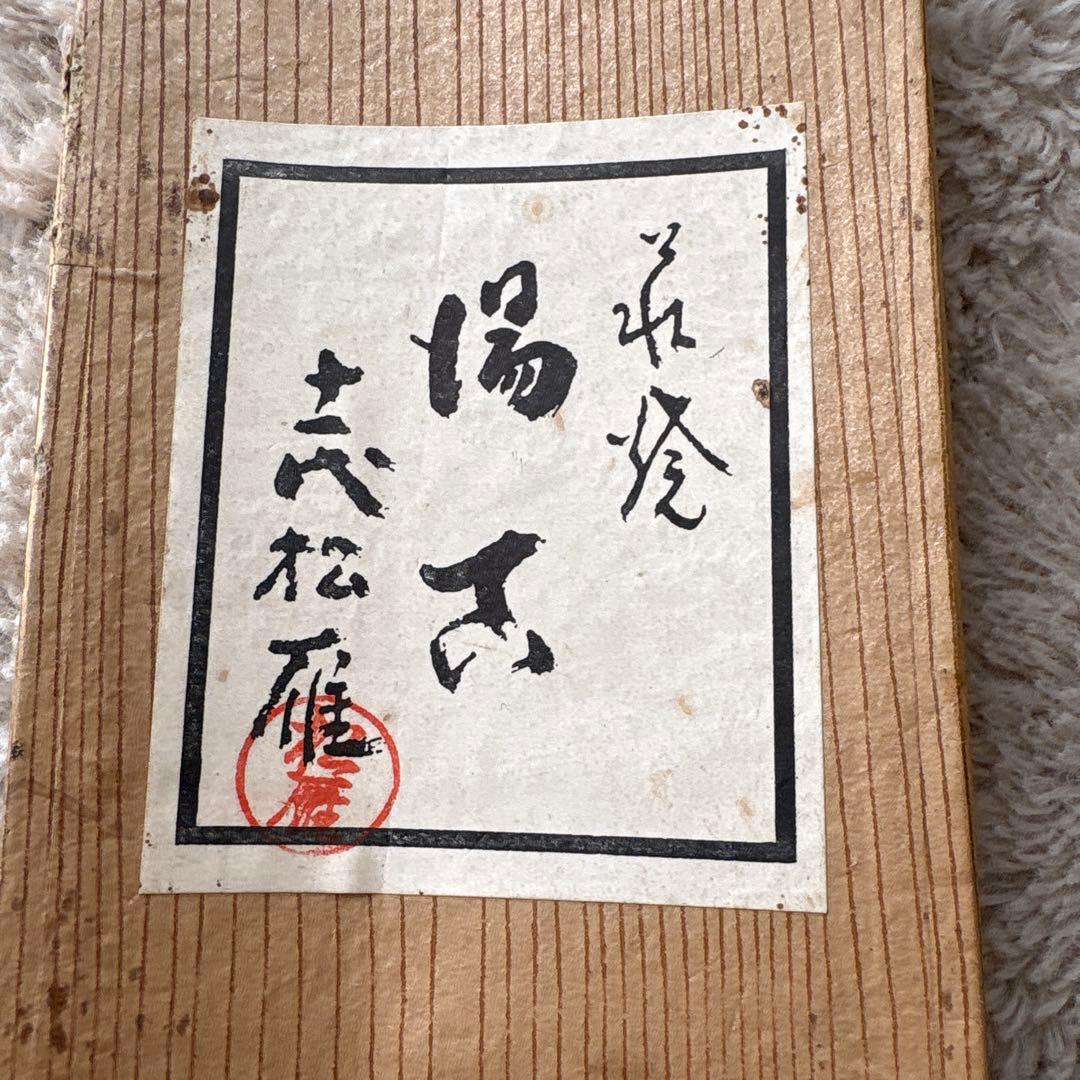 萩焼
湯呑
十二代松雁